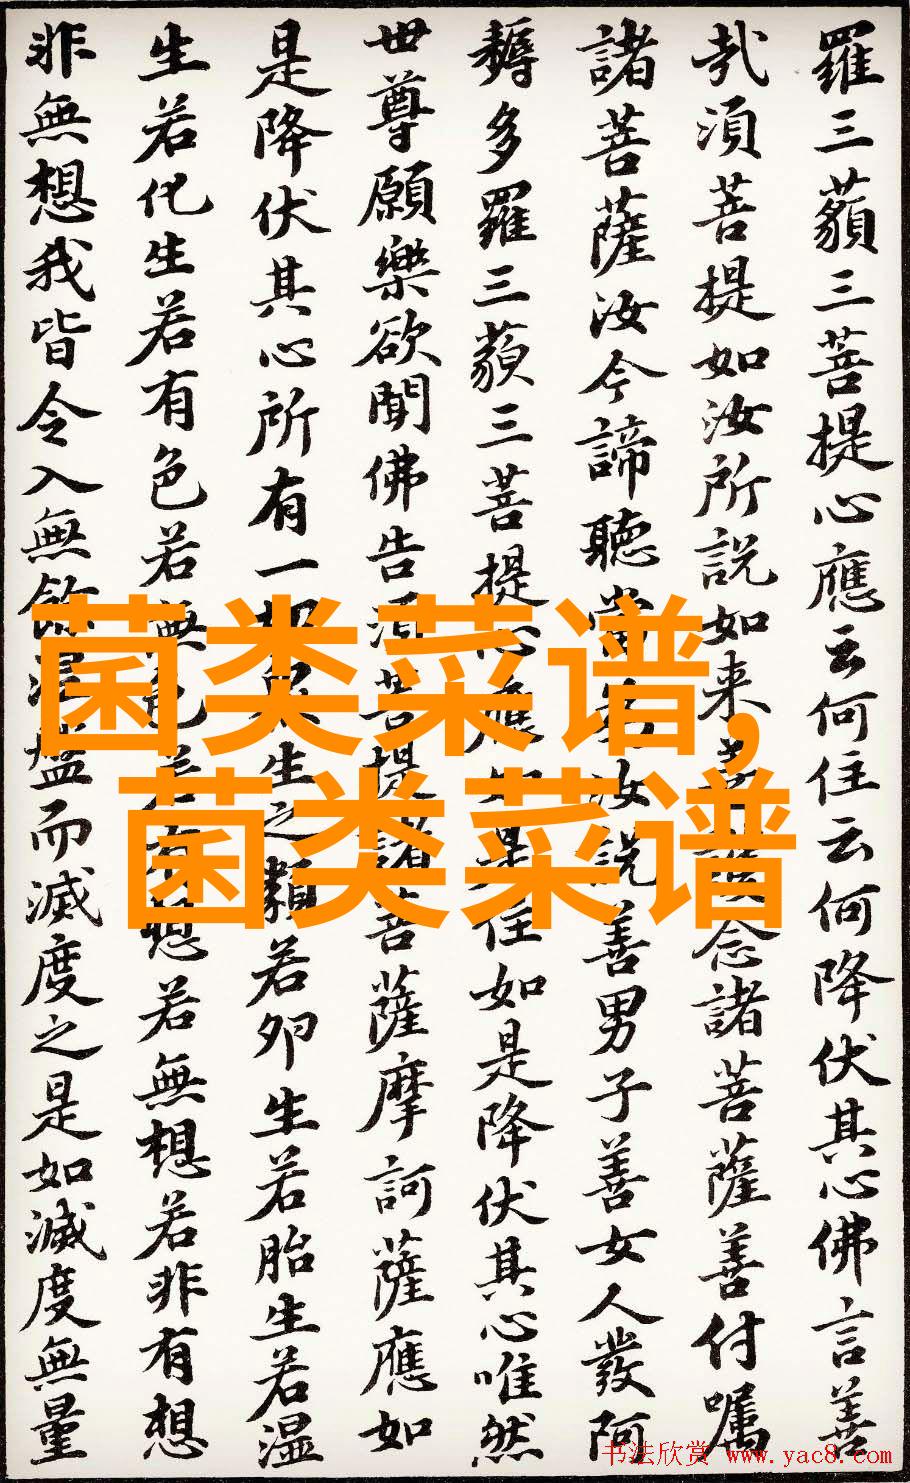 羅三藐三菩提心應云何住云何降伏其心佛言善
哉須菩提如汝所說如来善護念諸菩薩善付嘱
諸菩薩汝今諦聽當為汝說善男子善女人發阿
耨多羅三藐三菩提心應如是住如是降伏其心唯然
世尊願樂欲聞佛告須菩提諸菩薩摩訶薩應如
是降伏其心所有一切眾生之類若卵生若胎生若湿
生若化生若有色若無色若有想若無想若非有想
非無想我皆令入無餘涅槃而滅度之是如滅度無量
菌类菜谱,
菌类菜谱
书法欣赏 www.yac8.com